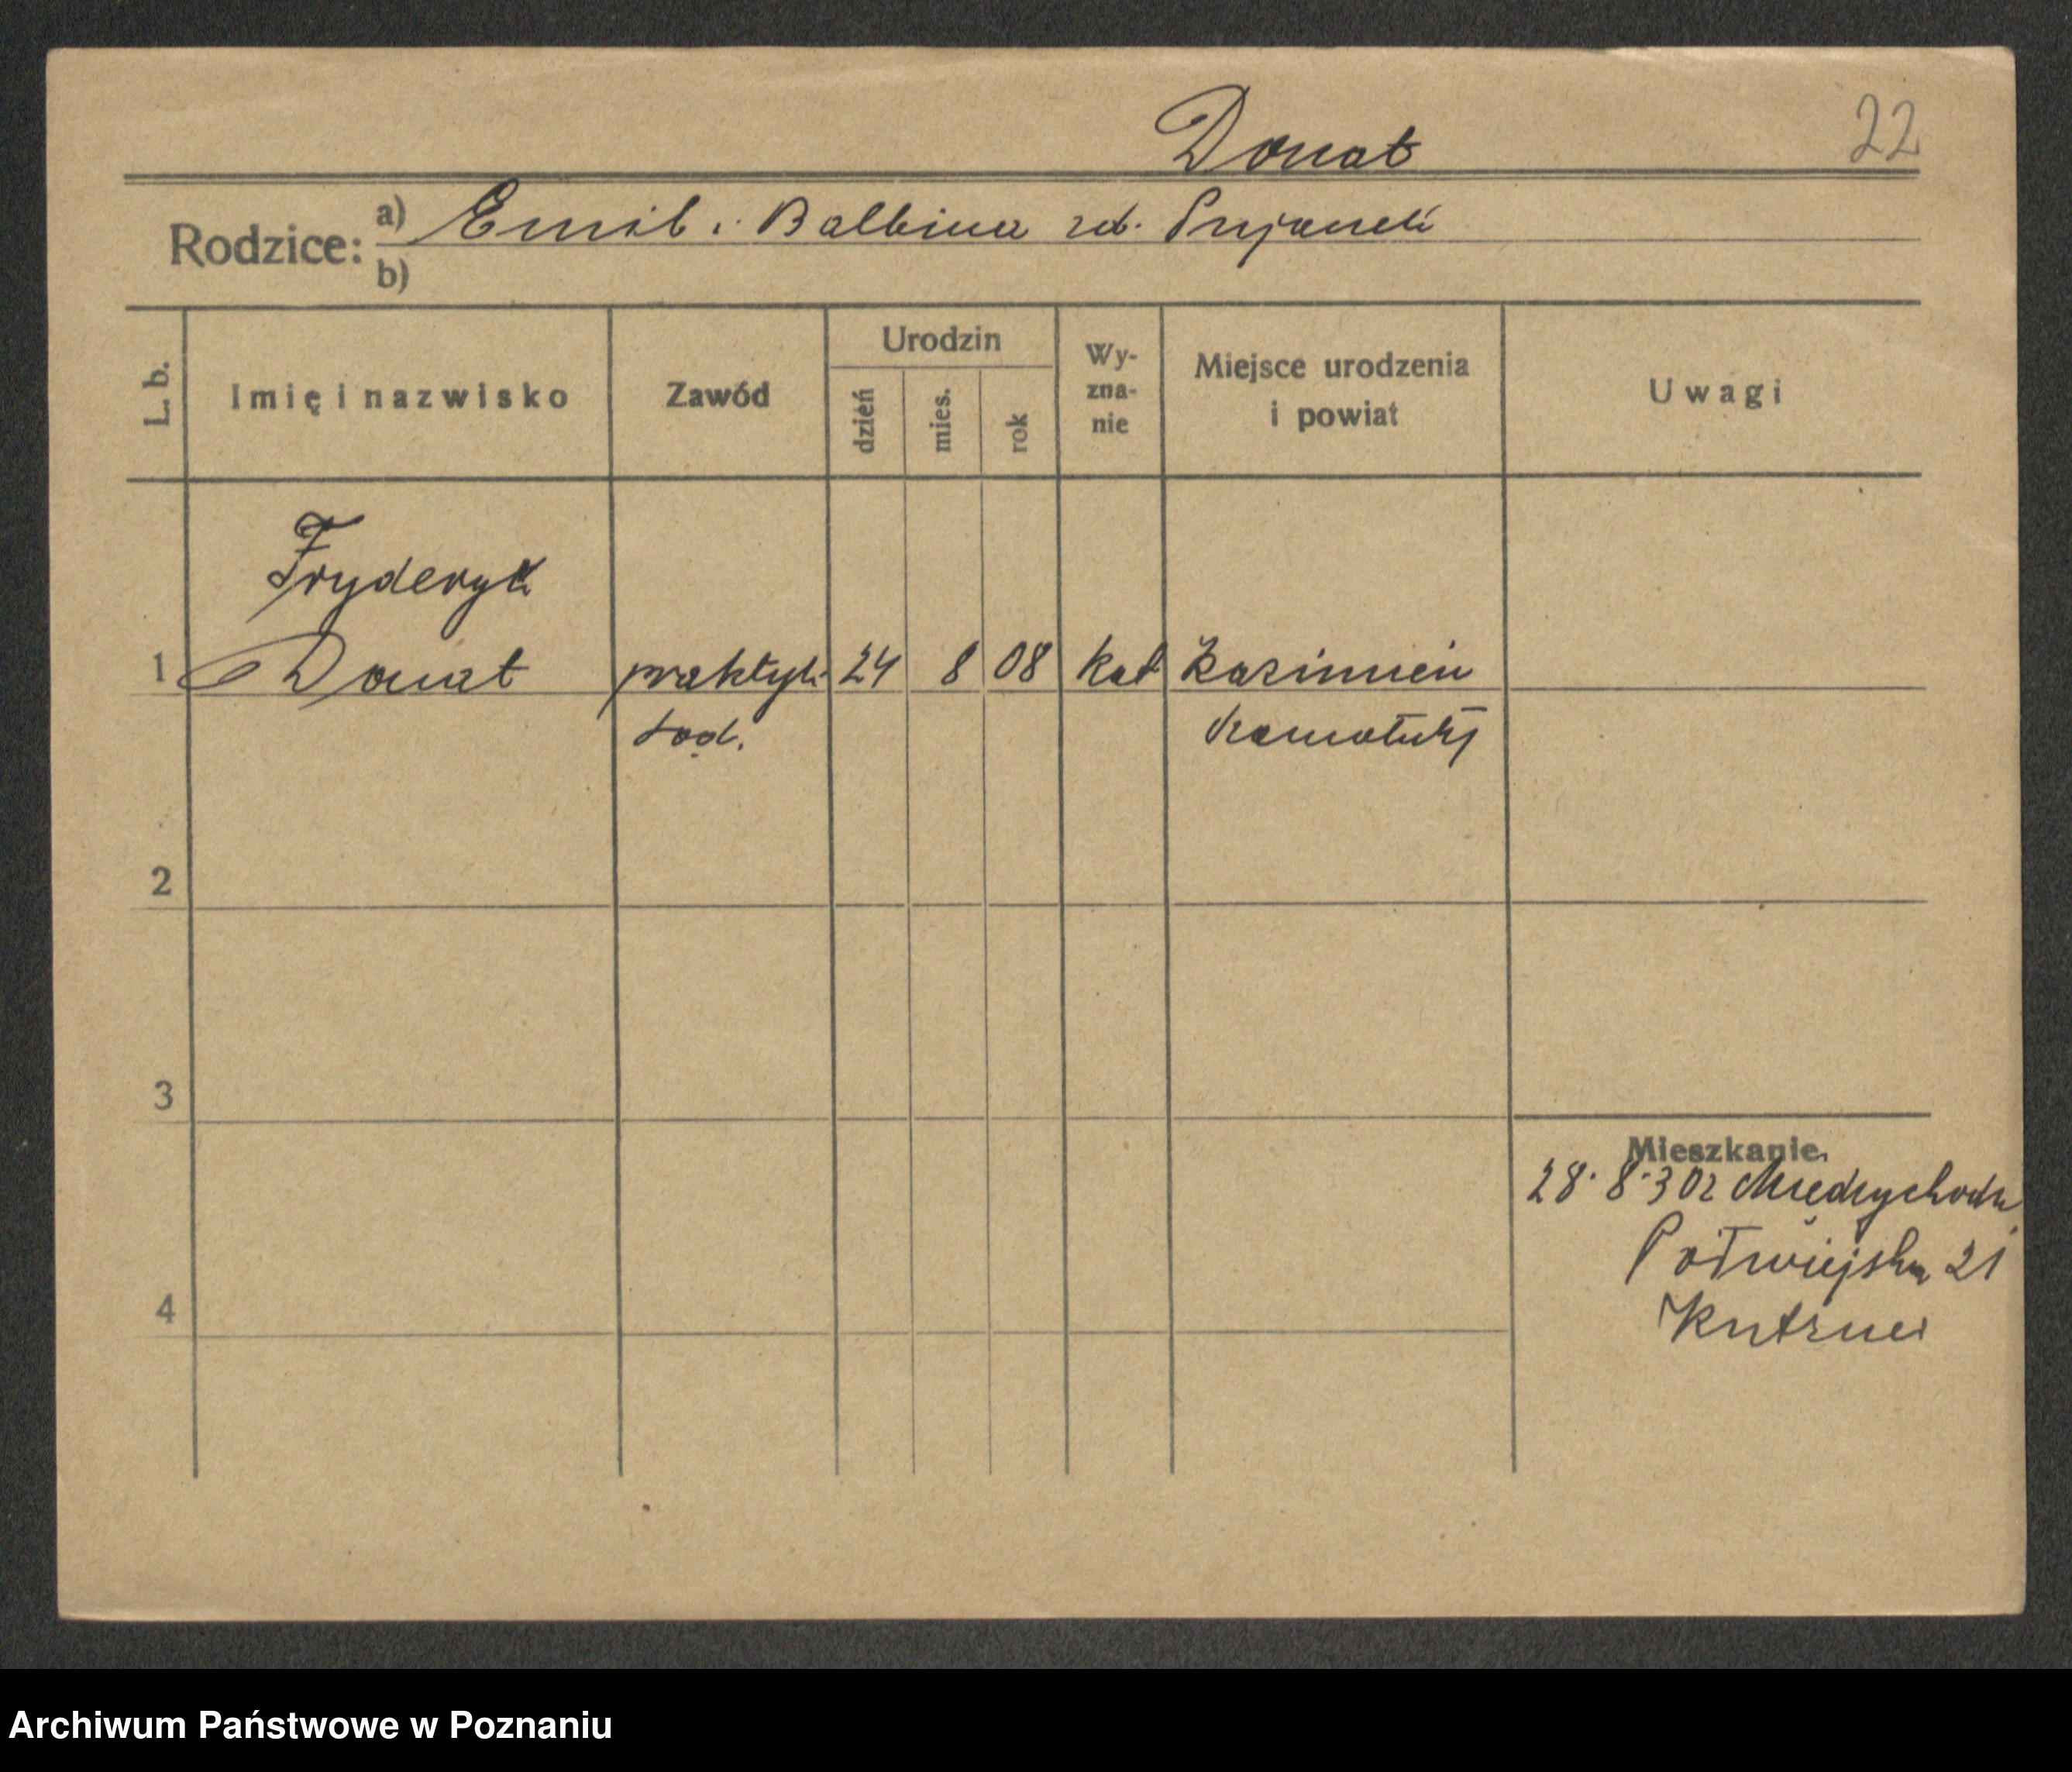 Donat
22
Rodzice: a) Emil i Balbina zd.
b)
L. b.
Imię i nazwisko
Zawód
Urodzin
dzień
mies.
rok
Wy-
zna-
nie
Miejsce urodzenia
i powiat
Uwagi
Fryderyk
1 Donat praktyk. 24 8 08 kat Kazimierz
sąd. Szamotuły
2
3
4
Mieszkanie.
28.8.30 z Międzychodu
Półwiejska 21
Archiwum Państwowe w Poznaniu